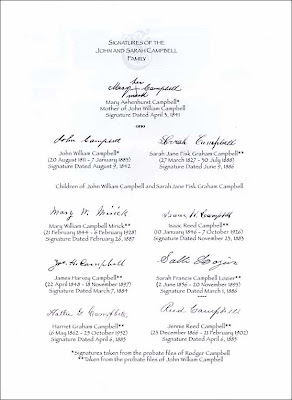 SIGNATURES OF THE
JOHN AND SARAH CAMPBELL
FAMILY
her
Mary Campbell
mark
Mary Ashenhurst Campbell*
Mother of John William Campbell
Signature Dated April 3, 1841
and
John Campbell Sarah Campbell
John William Campbell* Sarah Jane Fisk Graham Campbell**
(20 August 1811 - 7 January 1885) (27 March 1827 - 30 July 1888)
Signature Dated August 9, 1842 Signature Dated June 9, 1886
Children of John William Campbell and Sarah Jane Fisk Graham Campbell
Mary W. Mirick Isaac R. Campbell
Mary William Campbell Mirick** Isaac Reed Campbell**
(21 February 1844 - 8 February 1928) (10 January 1846 - 7 October 1926)
Signature Dated February 26, 1887 Signature Dated November 25, 1885
Jas. H. Campbell Sallie Lozier
James Harvey Campbell** Sarah Francis Campbell Lozier**
(22 April 1848 - 18 November 1897) (2 June 1856 - 20 November 1895)
Signature Dated March 7, 1884 Signature Dated March 1, 1886
Hattie G Campbell Reed Campbell
Harriet Graham Campbell** Jennie Reed Campbell**
(16 May 1862 - 23 October 1952) (25 December 1866 - 21 February 1902)
Signature Dated April 6, 1885 Signature Dated April 6, 1885
*Signatures taken from the probate files of Rodger Campbell
**Taken from the probate files of John William Campbell